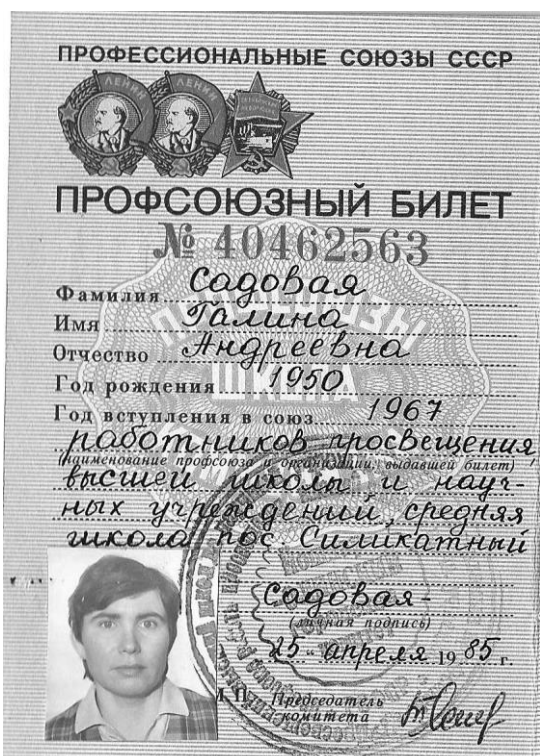 ПРОФЕССИОНАЛЬНЫЕ СОЮЗЫ СССР
ЛЕНИН ЛЕНИН
ПРОФСОЮЗНЫЙ БИЛЕТ
№ 40462563
Фамилия Садовая
Имя Галина
Отчество Андреевна
Год рождения 1950
Год вступления в союз 1967
работников просвещения,
(наименование профсоюза и организации, выдавшей билет)
высшей школы и науч-
ных учреждений, средняя
школа пос. Силикатный
Садовая-
(личная подпись)
25 апреля 1985 г.
М. П. Председатель
комитета